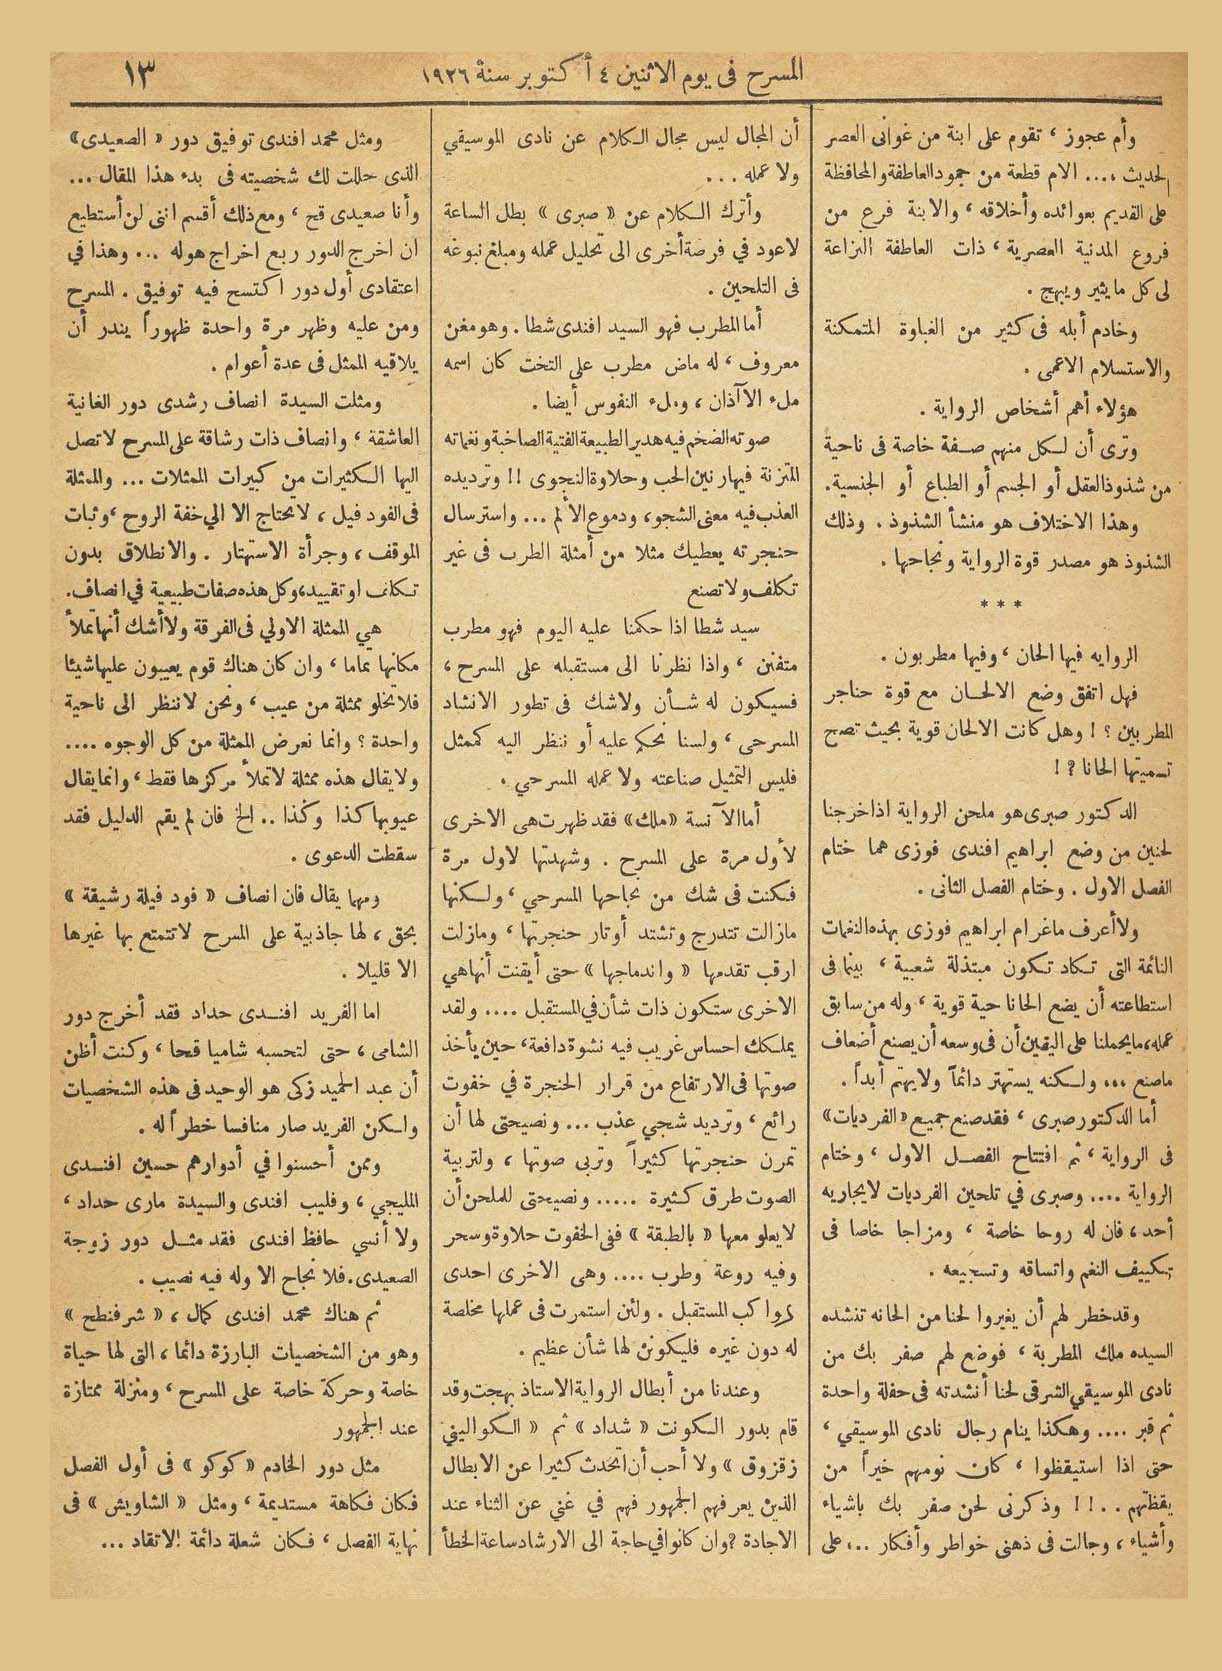 المسرح فى يوم الاثنين ٤ أكتوبر سنة ١٩٢٦
١٣
وأم عجوز ، تقوم على ابنة من غوانى العصر
الحديث ،... الام قطعة من جمود العاطفة والمحافظة
على القديم بعوائده وأخلاقه ، والابنة فرع من
فروع المدنية العصرية ، ذات العاطفة النزاعة
لى كل ما يثير ويبهج .
وخادم أبله فى كثير من الغباوة المتمكنة
والاستسلام الاعمى .
هؤلاء أهم أشخاص الرواية .
وترى أن لكل منهم صفة خاصة فى ناحية
من شذوذ العقل أو الجسم أو الطباع أو الجنسية.
وهذا الاختلاف هو منشأ الشذوذ . وذلك
الشذوذ هو مصدر قوة الرواية ونجاحها .
* * *
الروايه فيها الحان ، وفيها مطربون .
فهل اتفق وضع الالحان مع قوة حناجر
المطربين ؟ ! وهل كانت الالحان قوية بحيث تصح
تسميتها الحانا ؟ !
الدكتور صبرى هو ملحن الرواية اذا خرجنا
لحنين من وضع ابراهيم افندى فوزى هما ختام
الفصل الاول . وختام الفصل الثانى .
ولا أعرف ما غرام ابراهيم فوزى بهذه النغمات
النائمة التى تكاد تكون مبتذلة شعبية ، بينما فى
استطاعته أن يضع الحانا حية قوية ، وله من سابق
عمله، ما يحملنا على اليقين أن فى وسعه أن يصنع أضعاف
ماصنع ... ولكنه يستهتر دائماً ولا يهتم أبداً .
أما الدكتور صبرى ، فقد صنع جميع «الفرديات»
فى الرواية ، ثم افتتاح الفصل الاول ، وختام
الرواية .... وصبرى في تلحين الفرديات لا يجاريه
أحد ، فان له روحا خاصة ، ومزاجا خاصا فى
تكييف النغم واتساقه وتسجيعه .
وقد خطر لهم أن يغيروا لحنا من الحانه تنشده
السيده ملك المطربة ، فوضع لهم صفر بك من
نادى الموسيقي الشرقى لحنا أنشدته فى حفلة واحدة
ثم قبر .... وهكذا ينام رجال نادى الموسيقي ،
حتى اذا استيقظوا ، كان نومهم خيراً من
يقظتهم .. !! وذكرنى لحن صفر بك باشياء
وأشياء ، وجالت فى ذهنى خواطر وأفكار ... على
أن المجال ليس مجال الكلام عن نادى الموسيقي
ولا عمله ...
وأترك الكلام عن « صبرى » بطل الساعة
لاعود في فرصة أخرى الى تحليل عمله ومبلغ نبوغه
فى التلحين .
أما المطرب فهو السيد افندى شطا . وهو مغن
معروف ، له ماض مطرب على التخت كان اسمه
ملء الآذان ، وملء النفوس أيضا .
صوته الضخم فيه هدير الطبيعة الفتية الصاخبة ونغماته
المتزنة فيها رنين الحب وحلاوة النجوى !! وترديده
العذب فيه معنى الشجو ، ودموع الألم ... واسترسال
حنجرته يعطيك مثلا من أمثلة الطرب فى غير
تكلف ولا تصنع
سيد شطا اذا حكمنا عليه اليوم فهو مطرب
متفنن ، واذا نظرنا الى مستقبله على المسرح ،
فسيكون له شأن ولاشك فى تطور الانشاد
المسرحى ، ولسنا نحكم عليه أو ننظر اليه كممثل
فليس التمثيل صناعته ولا عمله المسرحي .
أما الآنسة «ملك» فقد ظهرت هى الاخرى
لأول مرة على المسرح . وشهدتها لاول مرة
فكنت فى شك من نجاحها المسرحي ، ولكنها
مازالت تتدرج وتشتد أوتار حنجرتها ، ومازلت
ارقب تقدمها « واندماجها » حتى أيقنت أنها هي
الاخرى ستكون ذات شأن في المستقبل .... ولقد
يملكك احساس غريب فيه نشوة دافعة، حين يأخذ
صوتها فى الارتفاع من قرار الحنجرة في خفوت
رائع ، وترديد شجي عذب ... ونصيحتى لها أن
تمرن حنجرتها كثيراً وتربى صوتها ، ولتربية
الصوت طرق كثيرة ..... ونصيحتى للملحن أن
لا يعلو معها « بالطبقة » ففى الخفوت حلاوة وسحر
وفيه روعة وطرب .... وهى الاخرى احدى
كواكب المستقبل . ولئن استمرت فى عملها مخلصة
له دون غيره فليكونن لها شأن عظيم .
وعندنا من أبطال الرواية الاستاذ بهجت وقد
قام بدور الكونت « شداد » ثم « الكواليني
زقزوق » ولا أحب أن اتحدث كثيرا عن الابطال
الذين يعرفهم الجمهور فهم في غني عن الثناء عند
الاجادة ؟ وان كانوا في حاجة الى الارشاد ساعة الخطأ
ومثل محمد افندى توفيق دور « الصعيدى»
الذى حللت لك شخصيته فى بدء هذا المقال ...
وأنا صعيدى قح ، ومع ذلك أقسم اننى لن أستطيع
ان اخرج الدور ربع اخراج هوله ... وهذا في
اعتقادى أول دور اكتسح فيه توفيق . المسرح
ومن عليه وظهر مرة واحدة ظهوراً يندر أن
يلاقيه الممثل فى عدة أعوام .
ومثلت السيدة انصاف رشدى دور الغانية
العاشقة ، وانصاف ذات رشاقة على المسرح لا تصل
اليها الكثيرات من كبيرات الممثلات ... والممثلة
فى الفودفيل ، لا تحتاج الا الي خفة الروح ، وثبات
الموقف ، وجرأة الاستهتار . والانطلاق بدون
تكلف او تقييد، وكل هذه صفات طبيعية في انصاف.
هي الممثلة الاولي فى الفرقة ولا أشك أنها تملأ
مكانها تماما ، وان كان هناك قوم يعيبون عليها شيئا
فلا تخلو ممثلة من عيب ، ونحن لا ننظر الى ناحية
واحدة ؟ وانما نعرض الممثلة من كل الوجوه ....
ولا يقال هذه ممثلة لا تملأ مركزها فقط ، وانما يقال
عيوبها كذا وكذا .. الخ فان لم يقم الدليل فقد
سقطت الدعوى .
ومهما يقال فان انصاف « فودفيلة رشيقة »
بحق ، لها جاذبية على المسرح لا تتمتع بها غيرها
الا قليلا .
اما الفريد افندى حداد فقد أخرج دور
الشامى ، حتى لتحسبه شاميا قحا ، وكنت أظن
أن عبد الحميد زكى هو الوحيد فى هذه الشخصيات
ولكن الفريد صار منافسا خطراً له .
وممن أحسنوا في أدوارهم حسين افندى
المليجي ، وفليب افندى والسيدة مارى حداد ،
ولا أنسي حافظ افندى فقد مثل دور زوجة
الصعيدى. فلا نجاح الا وله فيه نصيب .
ثم هناك محمد افندى كمال ، « شرفنطح »
وهو من الشخصيات البارزة دائما ، التى لها حياة
خاصة وحركة خاصة على المسرح ، ومنزلة ممتازة
عند الجمهور
مثل دور الخادم « كوكو » فى أول الفصل
فكان فكاهة مستديمة ، ومثل « الشاويش » فى
نهاية الفصل ، فكان شعلة دائمة الاتقاد ...